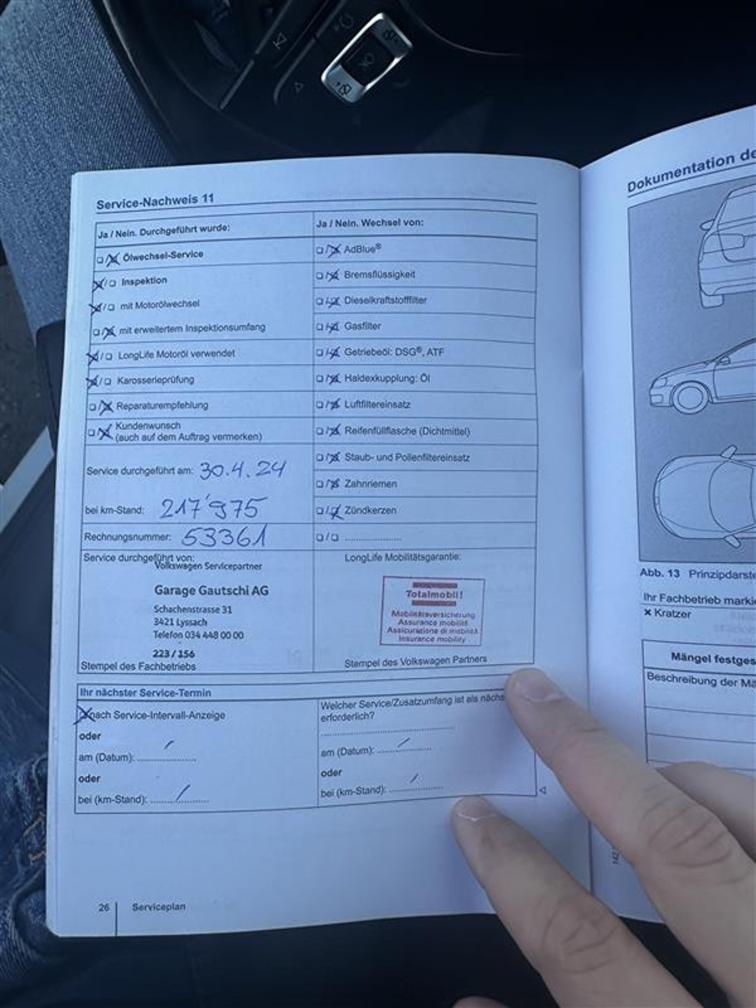 Service-Nachweis 11
Ja / Nein. Durchgeführt wurde:
☐/☒ Ölwechsel-Service
☒/☐ Inspektion
☒/☐ mit Motorölwechsel
☐/☒ mit erweitertem Inspektionsumfang
☒/☐ LongLife Motoröl verwendet
☒/☐ Karosserieprüfung
☐/☒ Reparaturempfehlung
☐/☒ Kundenwunsch
(auch auf dem Auftrag vermerken)
Service durchgeführt am: 30.4.24
bei km-Stand: 217'975
Rechnungsnummer: 53361
Ja / Nein. Wechsel von:
☐/☒ AdBlue®
☐/☒ Bremsflüssigkeit
☐/☒ Dieselkraftstofffilter
☐/☒ Gasfilter
☐/☒ Getriebeöl: DSG®, ATF
☐/☒ Haldexkupplung: Öl
☐/☒ Luftfiltereinsatz
☐/☒ Reifenfüllflasche (Dichtmittel)
☐/☒ Staub- und Pollenfiltereinsatz
☐/☒ Zahnriemen
☐/☒ Zündkerzen
☐/☐ ....................
Service durchgeführt von:
Volkswagen Servicepartner
Garage Gautschi AG
Schachenstrasse 31
3421 Lyssach
Telefon 034 448 00 00
223 / 156
Stempel des Fachbetriebs
LongLife Mobilitätsgarantie:
Totalmobil!
Mobilitätsversicherung
Assurance mobilité
Assicurazione di mobilità
Insurance mobility
Stempel des Volkswagen Partners
Ihr nächster Service-Termin
☒ nach Service-Intervall-Anzeige
oder
am (Datum): ....................
oder
bei (km-Stand): ....................
Welcher Service/Zusatzumfang ist als nächs
erforderlich?
am (Datum): ....................
oder
bei (km-Stand): ....................
26 Serviceplan
Dokumentation de
Abb. 13 Prinzipdarst
Ihr Fachbetrieb marki
× Kratzer
Mängel festges
Beschreibung der Mä